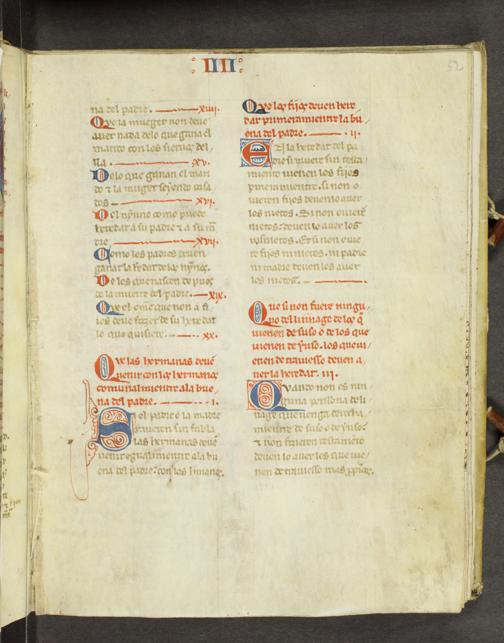 IIII
52
na del padre. xiiii.
Que la muger non deue
auer nada delo que gana el
marido con los sieruos del
lla. xv.
Delo que ganan el mari
do & la muger seyendo casa
dos xvi.
Del nynno como puede
heredar a su padre & a su m
dre xvii.
Como los padres deuen
ganar la heredat de los
De los que nascen depues
de la muerte del padre. xix.
Que el omne que non a fi
ios deue fazer de su heredat
lo que quisiere. xx.
Que las hermanas deuen
uenir con los hermanos
comunalmientre ala bue
na del padre. i.
Si el padre o la madre
murieren sin fabla
las hermanas deuen
uenir egualmientre a la bu
ena del padre con los hermanos.
Que los fijos deuen here
dar primeramientre la bu
ena del padre. ii.
En la heredat del pa
dre si muere sin testa
miento uienen los fijos
primeramientre. si non o
uieren fijos deuenlo auer
los nietos. Si non ouiere
nietos deuenlo auer los
uisnietos. Et si non ouie
re fijos ni nietos. ni padre
ni madre deuen los auer
los nietos.
Que si non fuere ningu
no del linnage de los que
uienen de suso o de los que
uienen de yuso. los que ui
enen de trauiesso deuen a
uer la heredat. iii.
Quando non es nin
guna persona de li
nage que uenga derecha
mientre de suso o de yuso.
& non fizieren testamiento
deuen lo auer los que uie
nen de trauiesso mas